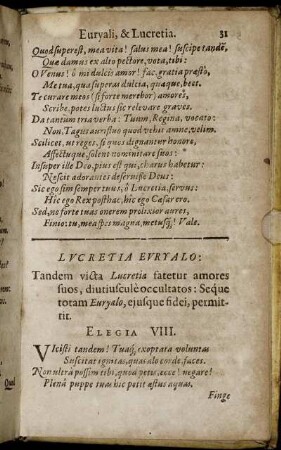 Euryali, & Lucretia. 31
Quod superest, mea vita! salus mea! suscipe tandē,
Quæ damus ex alto pectore, vota, tibi:
O Venus! ô mi dulcis amor! fac, gratia præsto,
Me tua, quâ superat dulcia, quæque, beet.
Te curare meos (si forte merebor) amores,
Scribe, potes luctus sic relevare graves.
Da tantùm tria verba: Tuum, Regina, vocato:
Non, Tagus auri fluo quod vehit amne, velim.
Scilicet, ut reges, si quos dignantur honore,
Affectuque, solent nominitare suos:
Insuper iste Deo, pius est qui, charus habetur:
Nescit adorantes deseruisse Deus:
Sic ego sim semper tuus, ô Lucretia, servus:
Hic ego Rex posthac, hic ego Cæsar ero.
Sed, ne forte tuas onerem prolixior aures,
Finio: tu, mea spes magna, metusq;! Vale.
LVCRETIA EVRYALO:
Tandem victa Lucretia fatetur amores
suos, diutiusculè occultatos: Seque
totam Euryalo, ejusque fidei, permit-
tit.
ELEGIA VIII.
VIcisti tandem! Tuaq; exoptara voluntas
Suscitat ignitas, quas alo corde, faces.
Non ultrà possim tibi, quod petis, ecce! negare!
Plenâ puppe tuas hic petit æstus aquas.
Finge
Quod